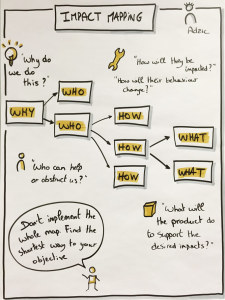 IMPACT MAPPING
Adzic
"Why do
we do
this?"
"How will they be
impacted?"
"How will their behaviour
change?"
WHO
WHY
WHO
HOW
HOW
WHAT
HOW
WHAT
"Who can help
or obstruct us?"
"What will
the product do
to support the
desired impacts?"
Don't implement the
whole map. Find the
shortest way to your
objective